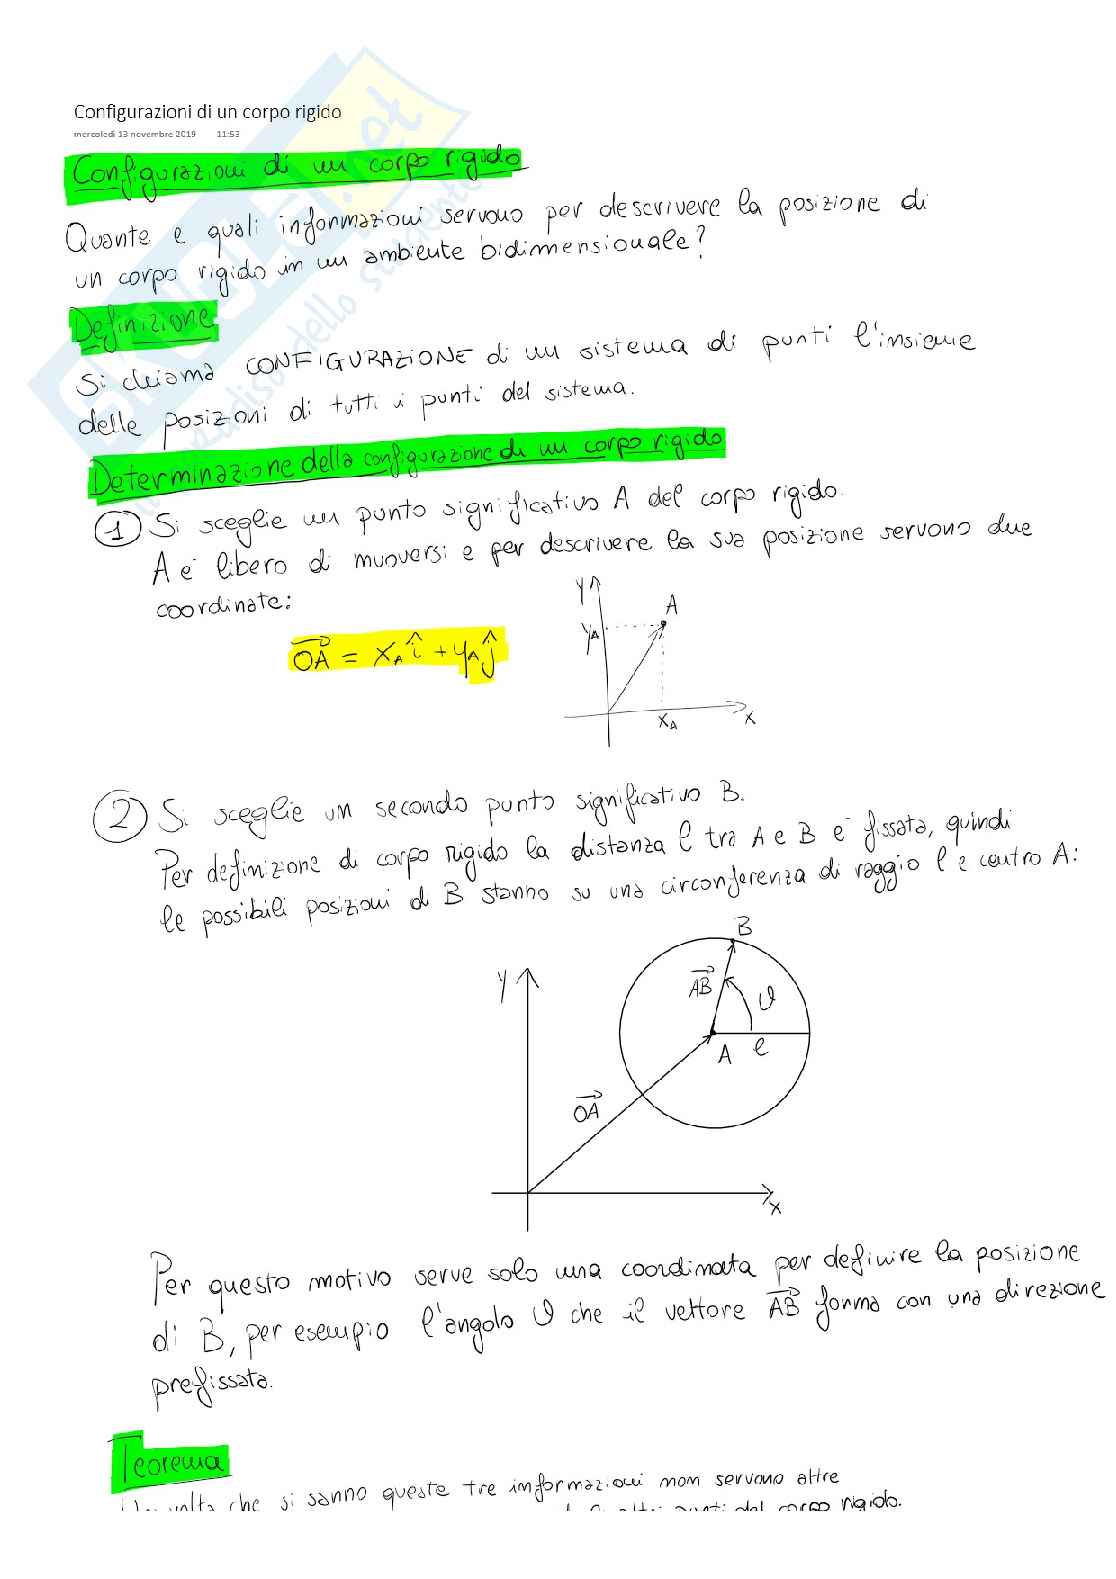 Configurazioni di un corpo rigido
mercoledì 13 novembre 2019 11:53
Configurazioni di un corpo rigido
Quante e quali informazioni servono per descrivere la posizione di
un corpo rigido in un ambiente bidimensionale?
Definizione
Si chiama CONFIGURAZIONE di un sistema di punti l'insieme
delle posizoni di tutti i punti del sistema.
Determinazione della configurazione di un corpo rigido
1 Si sceglie un punto significativo A del corpo rigido.
A è libero di muoversi e per descrivere la sua posizione servono due
coordinate:
OA = xA î + yA ĵ
y
A
yA
xA
x
2 Si sceglie un secondo punto significativo B.
Per definizione di corpo rigido la distanza l tra A e B è fissata, quindi
le possibili posizioni d B stanno su una circonferenza di raggio l e centro A:
B
y
AB
ϑ
A
l
OA
x
Per questo motivo serve solo una coordinata per definire la posizione
di B, per esempio l'angolo ϑ che il vettore AB forma con una direzione
prefissata.
Teorema
volta che si sanno queste tre informazioni non servono altre
altri punti del corpo rigido.